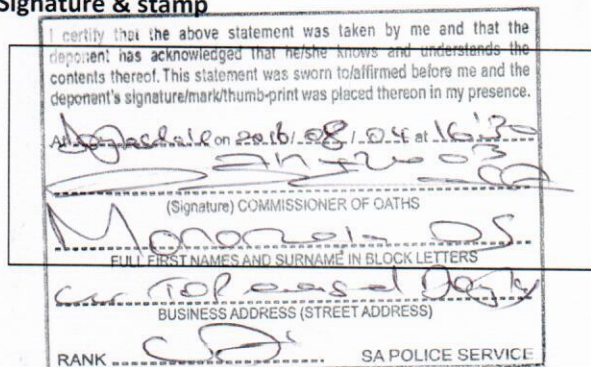 Signature & stamp
I certify that the above statement was taken by me and that the
deponent has acknowledged that he/she knows and understands the
contents thereof. This statement was sworn to/affirmed before me and the
deponent's signature/mark/thumb-print was placed thereon in my presence.
At on 2016/08/04 at 16:30
(Signature) COMMISSIONER OF OATHS
DS
FULL FIRST NAMES AND SURNAME IN BLOCK LETTERS
BUSINESS ADDRESS (STREET ADDRESS)
RANK SA POLICE SERVICE